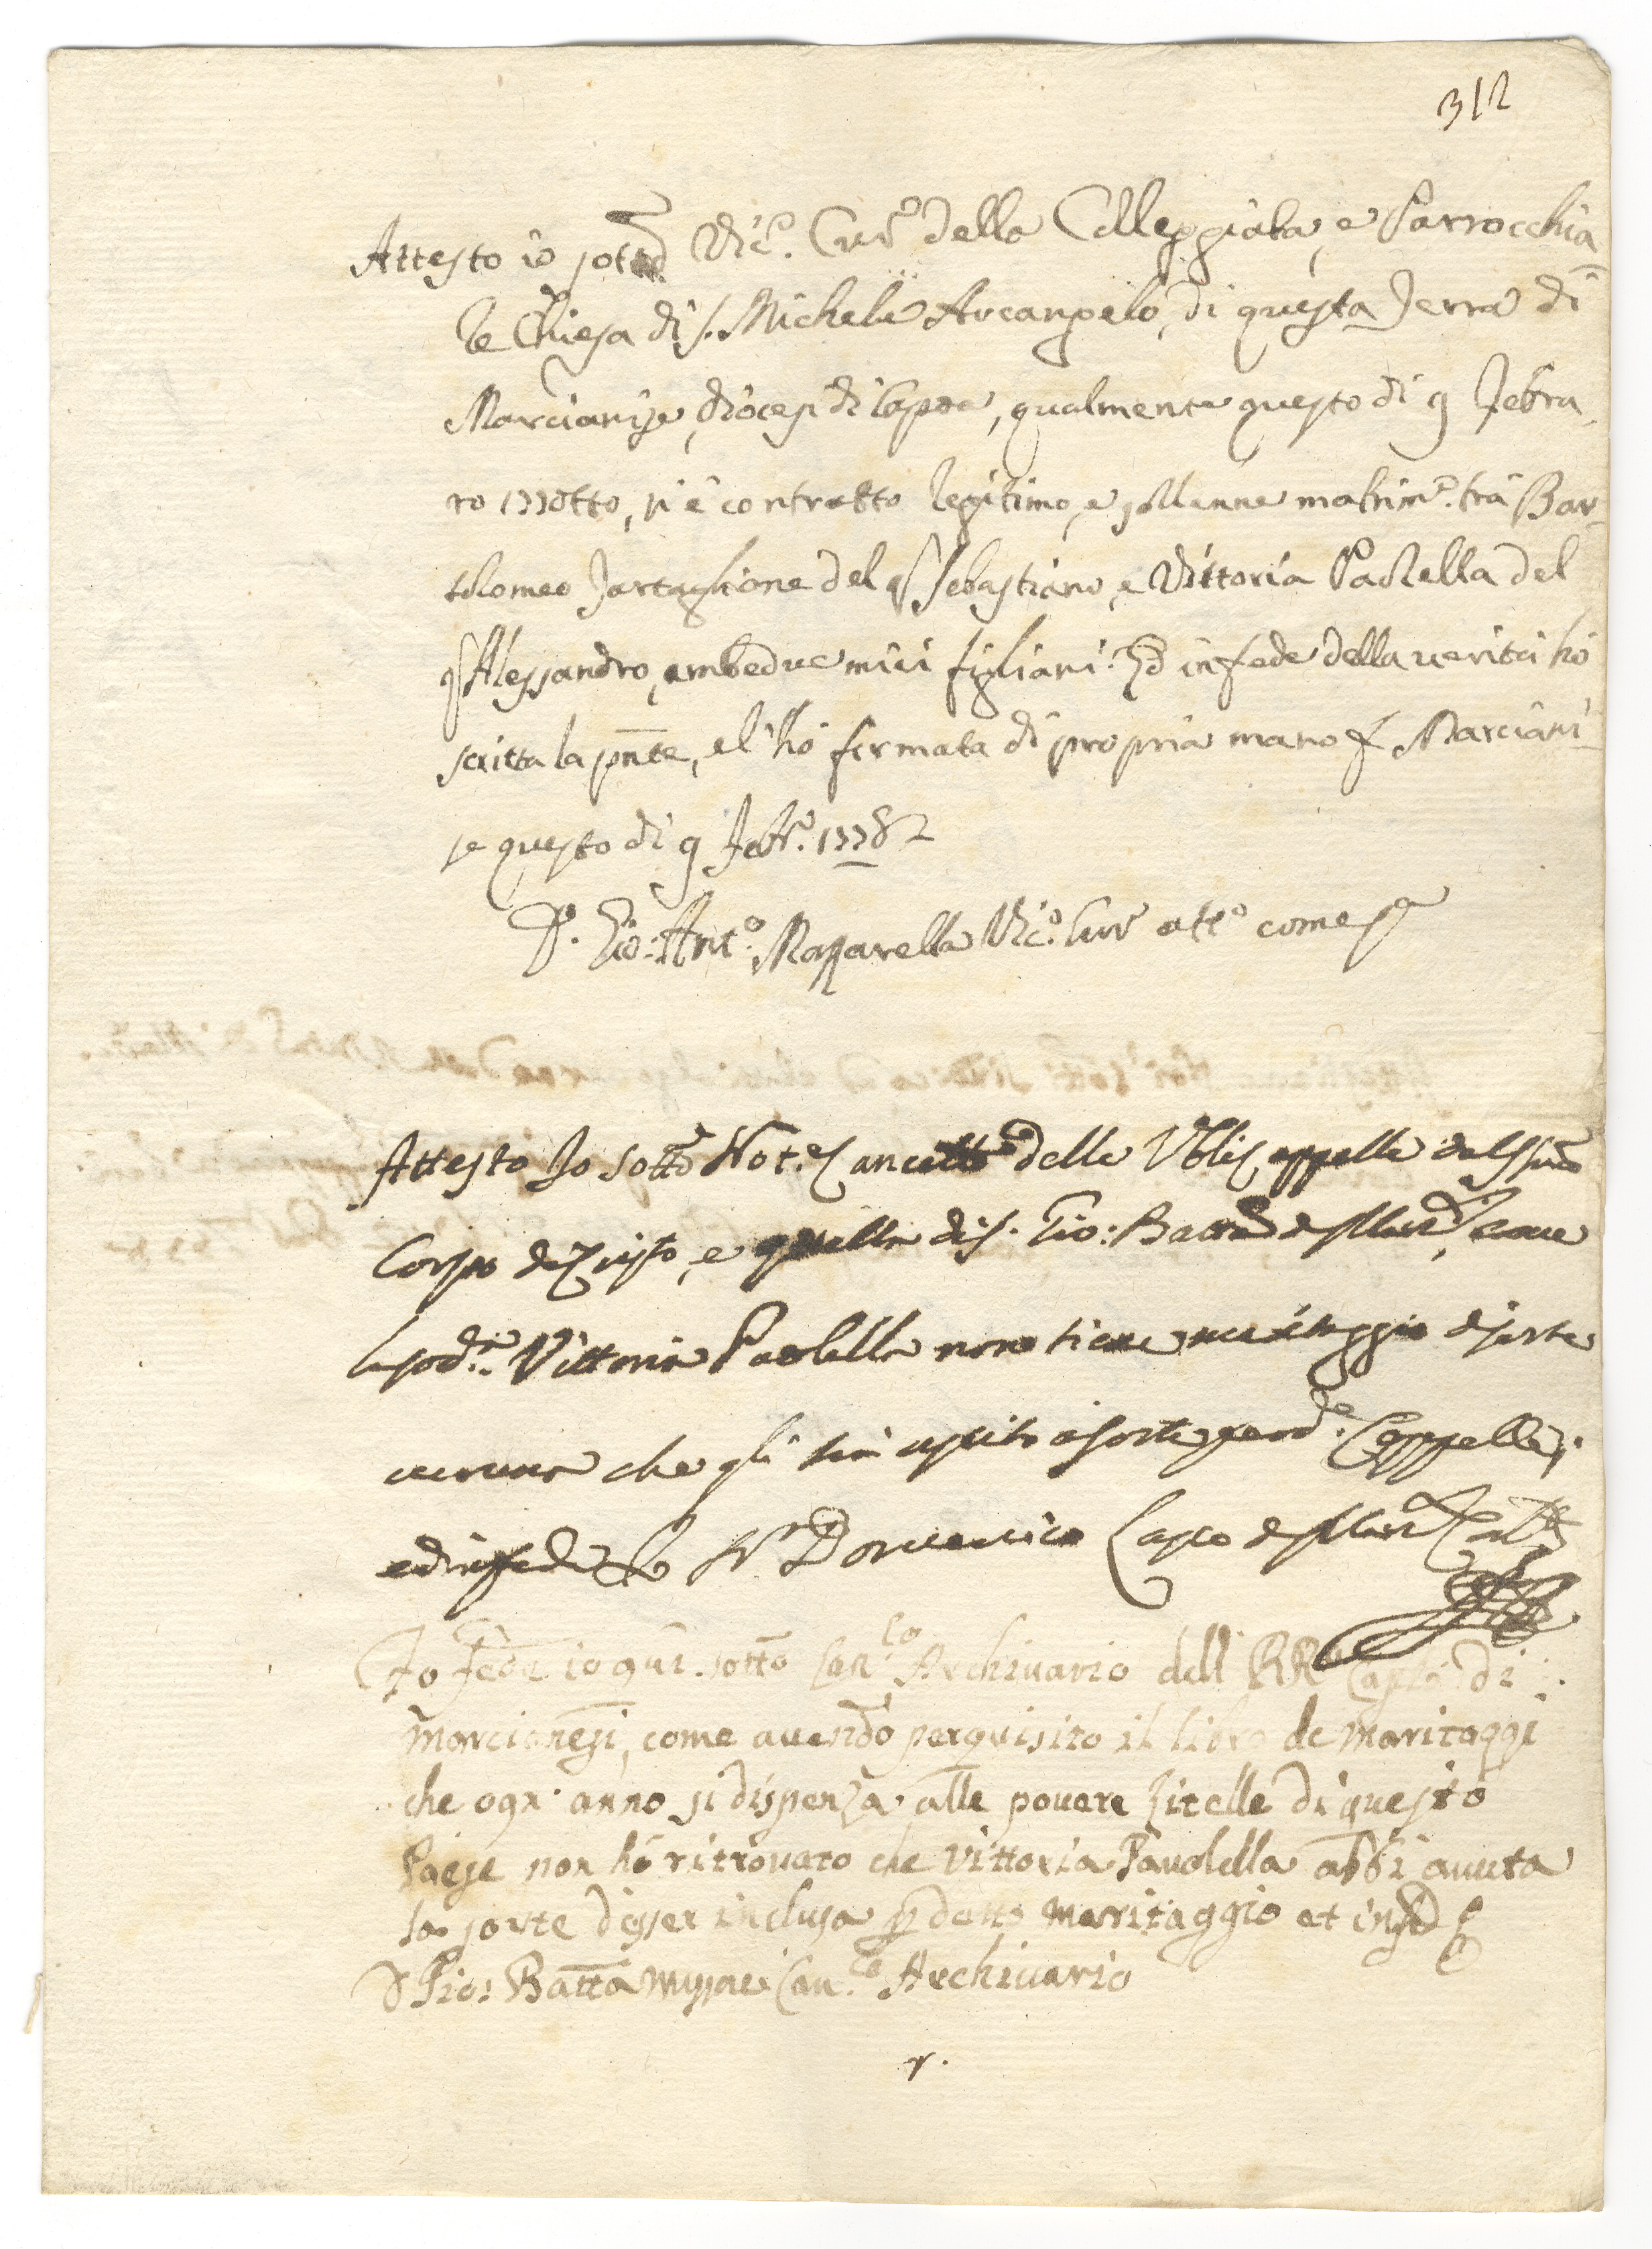 312
Attesto io sott.o Vic.o Cur.o della Colleggiata, e Parrocchia
le Chiesa di S. Michele Arcangelo, di questa Terra di
Marcianise, diocesi di Capoa, qualmente questo di 9 Febra
ro 177otto, si è contratto legitimo, e sollenne matrim.o trà Bar
tolomeo Tartaglione del q Sebastiano, e Vittoria Paolella del
q Alessandro, ambedue miei figliani. Ed in fede della verità hò
scritta la pnte, e l'hò firmata di propria mano Marciani
se questo di 9 Febr.o 1778
D. Gio: Ant.o Mazzarella Vic.o Cur.o att.o come sa
Attesto Io sotto Not.r Cancell.re delle Vbli Cappelle del SSmo
Corpo di Cristo, e quella di S. Gio: Batta di Marse, come
la sod.a Vittoria Paolella non tiene maritaggio di sorte
veruna che gli sia uscito a sorte per d.e Cappelle,
ed in fede Nr Domenico di Marse
Fo fede io qui sotto Can.co Archivario dell RR Cap.lo di
Marcianesi, come avendo perquisito il libro de Maritaggi
che ogn' anno si dispenza alle povere zitelle di questo
Paese non hò ritrovato che Vittoria Pavolella abbi avuta
la sorte d'esser inclusa p detto Marritaggio et in fd
D Gio: Batta Can.co Archivario
r.